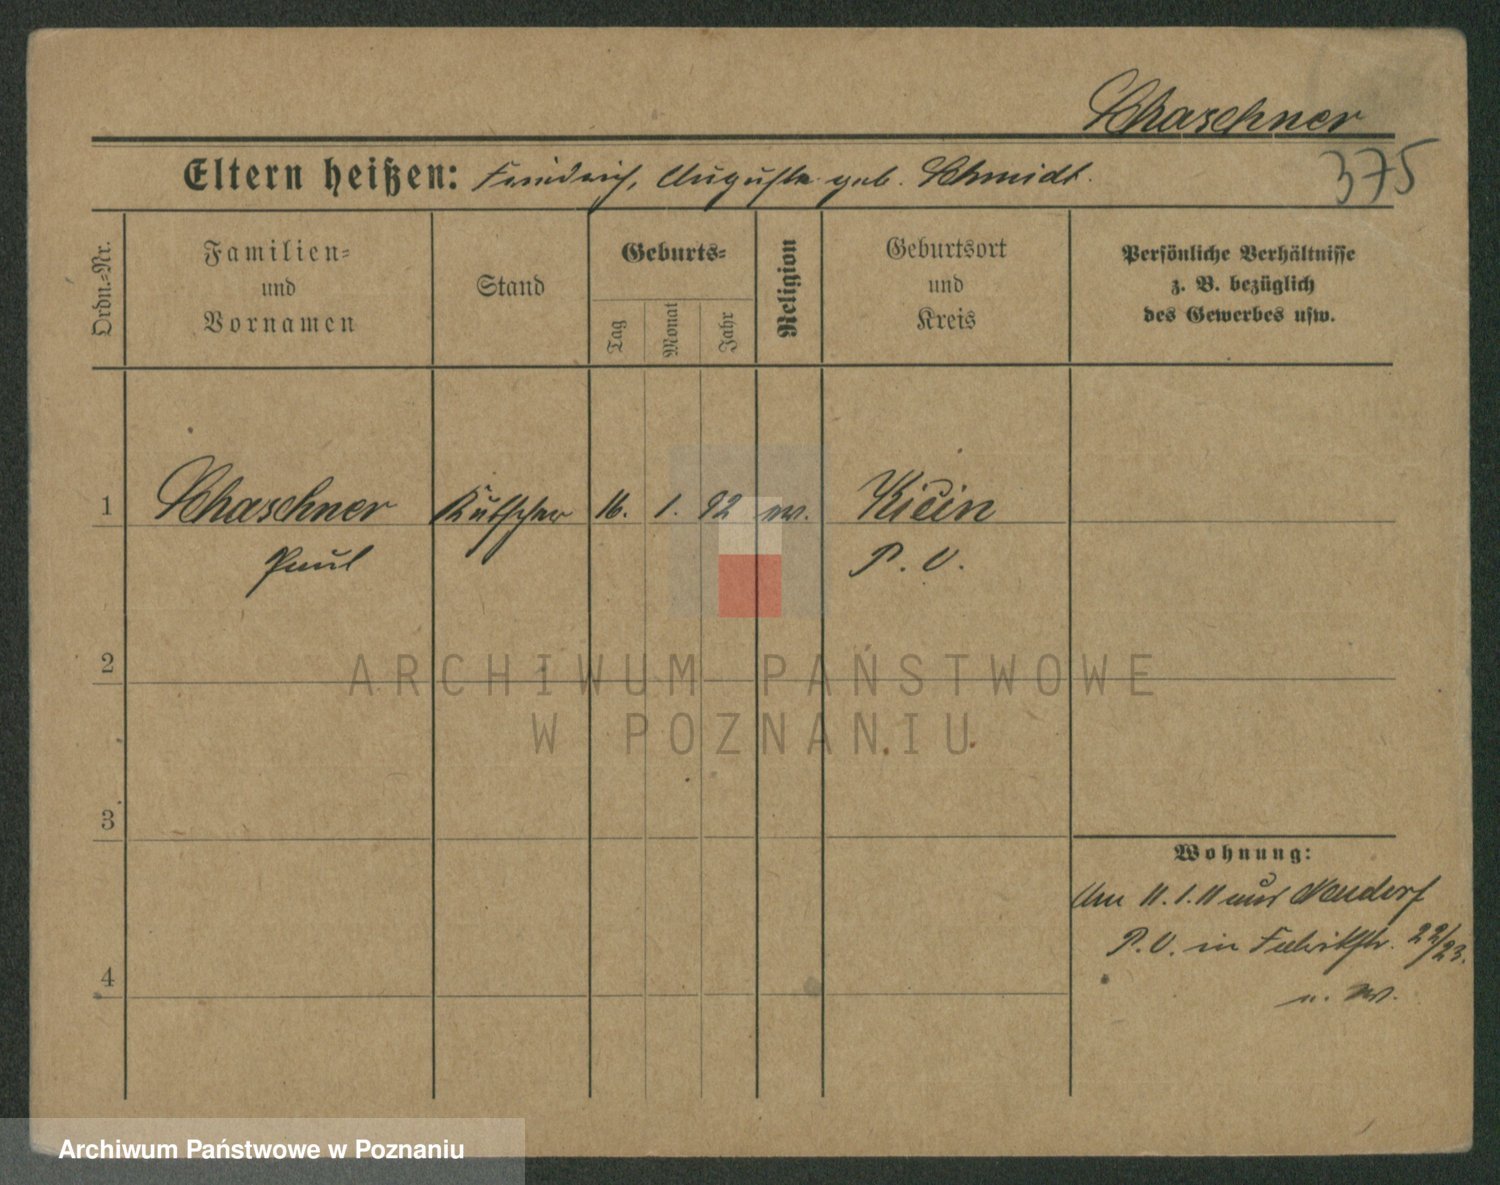 Schaschner
375
Eltern heißen: Friedrich, Auguste geb. Schmidt.
Ordn.=Nr.
Familien=
und
Vornamen
Stand
Geburts=
Tag
Monat
Jahr
Religion
Geburtsort
und
Kreis
Persönliche Verhältnisse
z. B. bezüglich
des Gewerbes usw.
1 Schaschner Kutscher 16. 1. 92 ev. Kicin
Paul P. O.
2
3
4
ARCHIWUM PAŃSTWOWE
W POZNANIU
Wohnung:
Am 11. 1. 11 aus Neudorf
P. O. in Fabrikstr. 22/23.
Archiwum Państwowe w Poznaniu